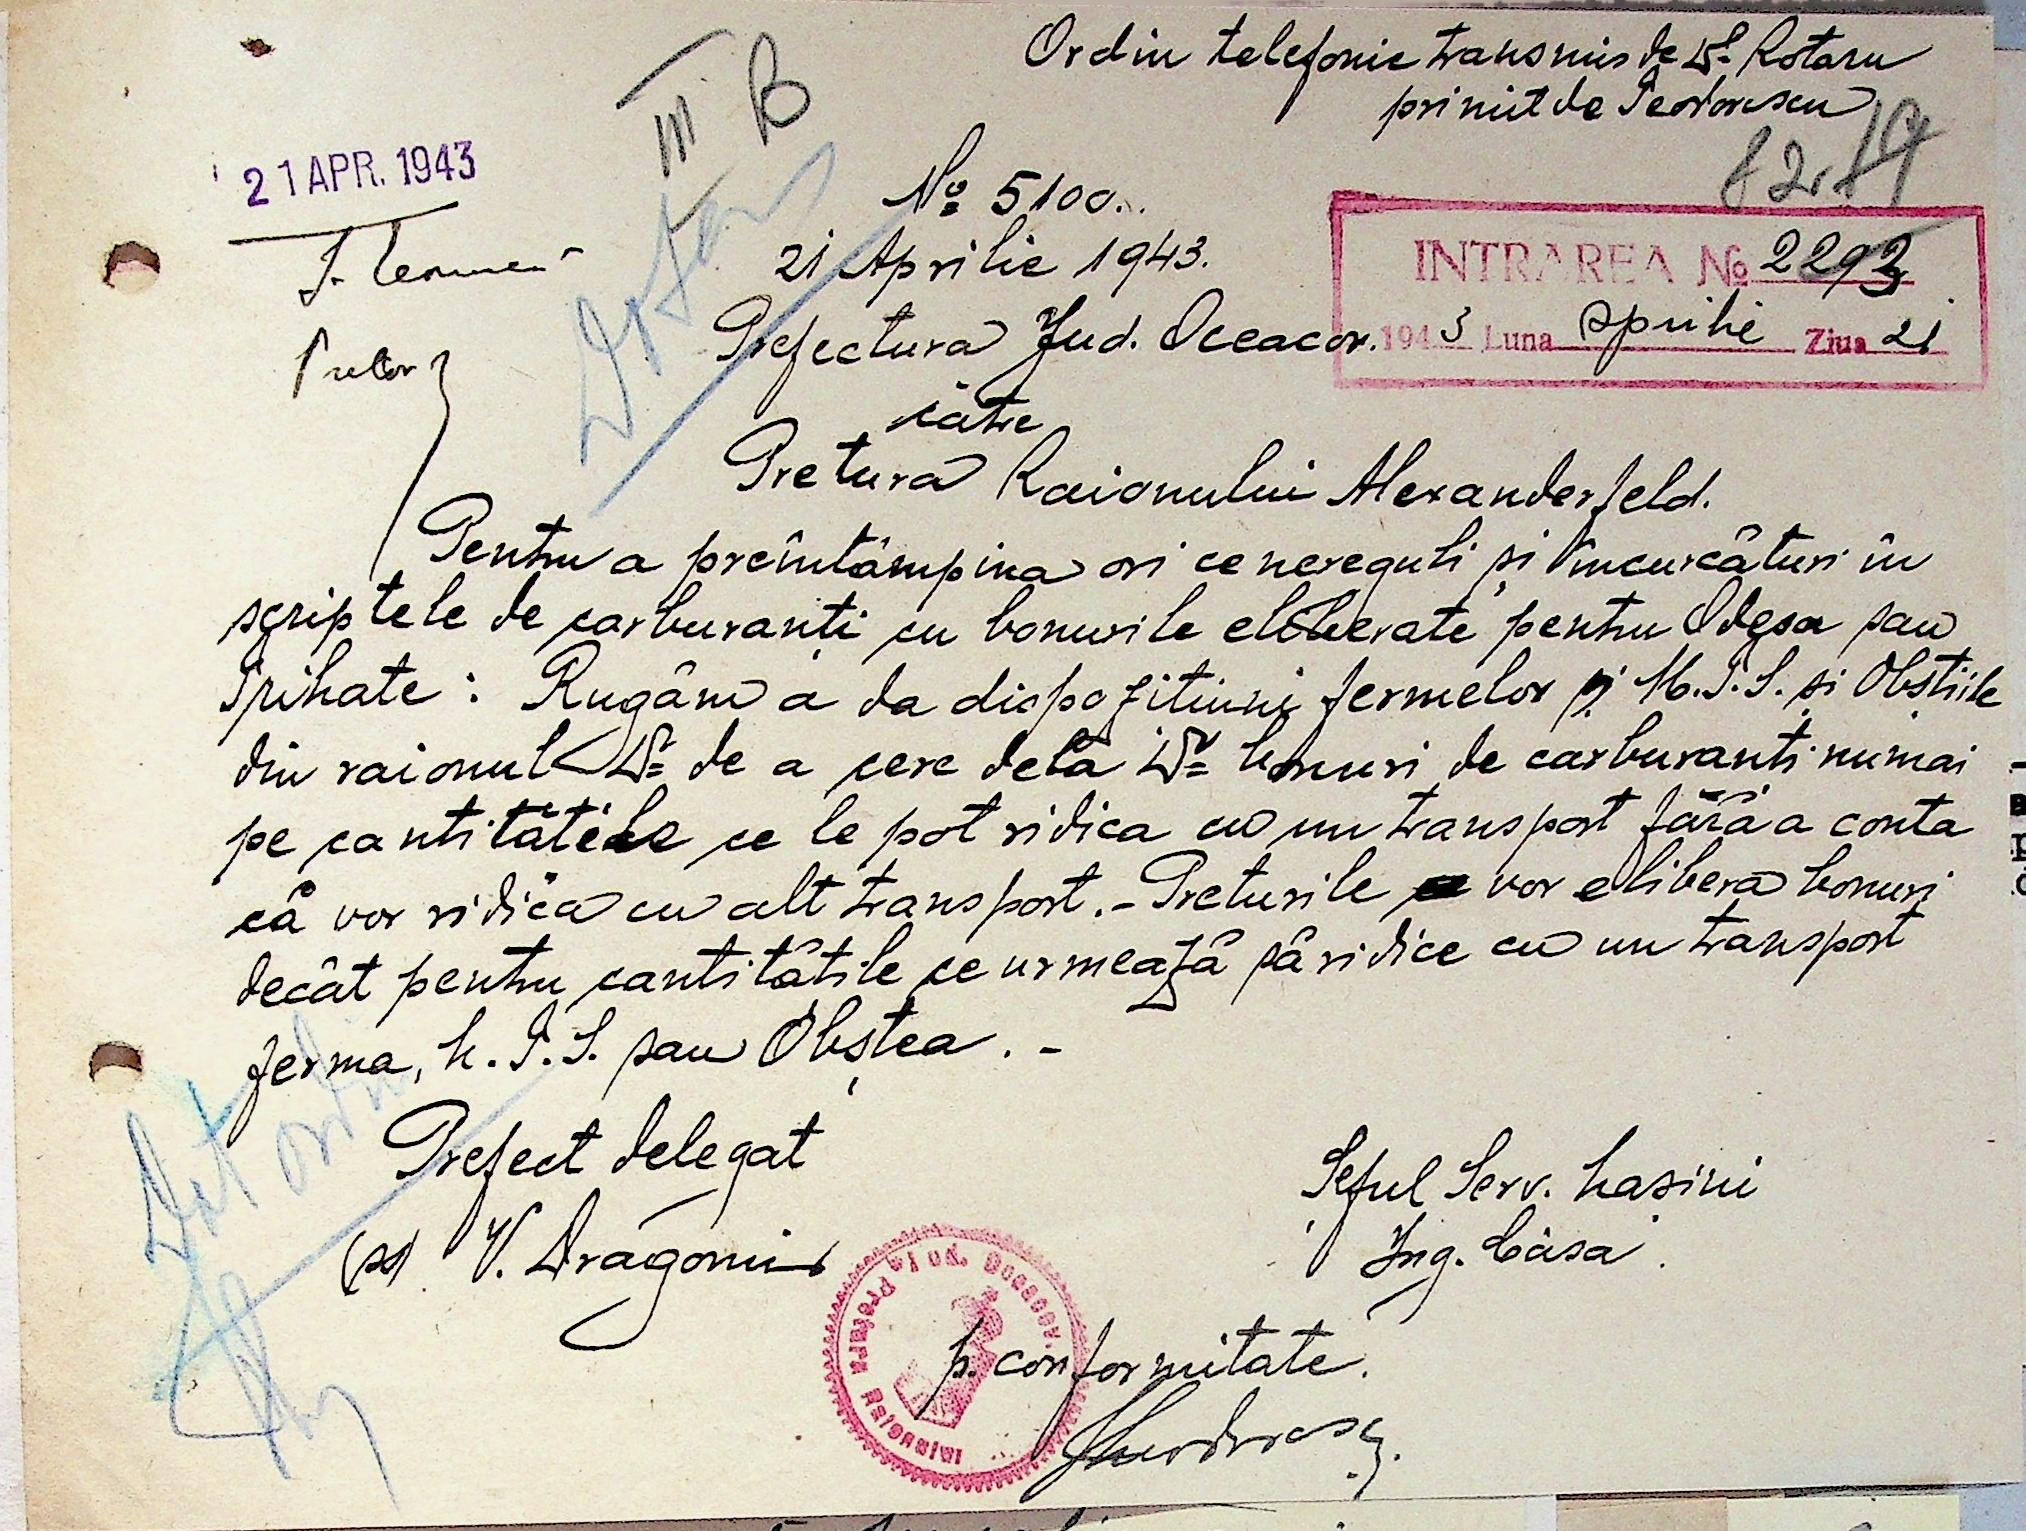 Ordin telefonic transmis de Dl. Rotaru
primit de Teodorescu
III B
21 APR. 1943
No 5100.
INTRAREA No 2293
21 Aprilie 1943.
1943 Luna Aprilie Ziua 21
Pretor
Prefectura Jud. Oceacov.
către
Pretura Raionului Alexanderfeld.
Pentru a preîntâmpina ori ce nereguli și încurcături în
scriptele de carburanți cu bonurile eliberate pentru Odesa sau
Trihate : Rugăm a da dispozițiuni fermelor și M.T.S. și Obștiile
din raionul Dv. de a cere dela Dv. bonuri de carburanți numai
pe cantitățile ce le pot ridica cu un transport fără a conta
că vor ridica cu alt transport. - Preturile vor elibera bonuri
decât pentru cantitățile ce urmează să ridice cu un transport
ferma, M.T.S. sau Obștea. -
Prefect delegat
(ss) V. Dragomir
Șeful Serv. Mașini
Ing. Căsa
Prefectura Jud. Oceacov.
p. conformitate.